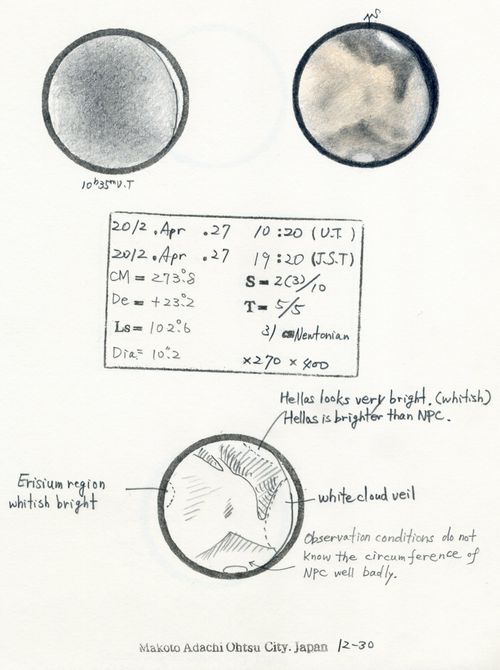 10h35mU.T
2012.Apr .27 10:20 (U.T.)
2012.Apr .27 19:20 (J.S.T)
CM = 273°.8 S = 2(3)/10
De = +23°.2 T = 5/5
Ls = 102°.6 31 cm Newtonian
Dia = 10".2 ×270 × 400
Hellas looks very bright. (whitish)
Hellas is brighter than NPC.
Erisium region
whitish bright
white cloud veil
Observation conditions do not
know the circumference of
NPC well badly.
Makoto Adachi Ohtsu City. Japan 12-30